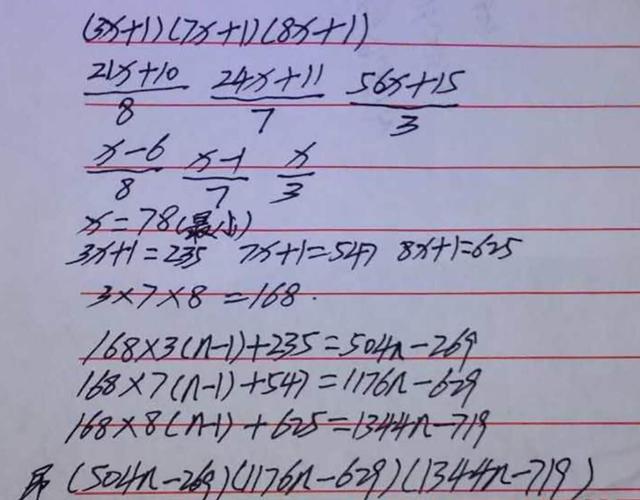 (3x+1)(7x+1)(8x+1)
21x+10/8 24x+11/7 56x+15/3
x-6/8 x-1/7 x/3
x=78(最小)
3x+1=235 7x+1=547 8x+1=625
3×7×8=168.
168×3(n-1)+235=504n-269
168×7(n-1)+547=1176n-629
168×8(n-1)+625=1344n-719
(504n-269)(1176n-629)(1344n-719)